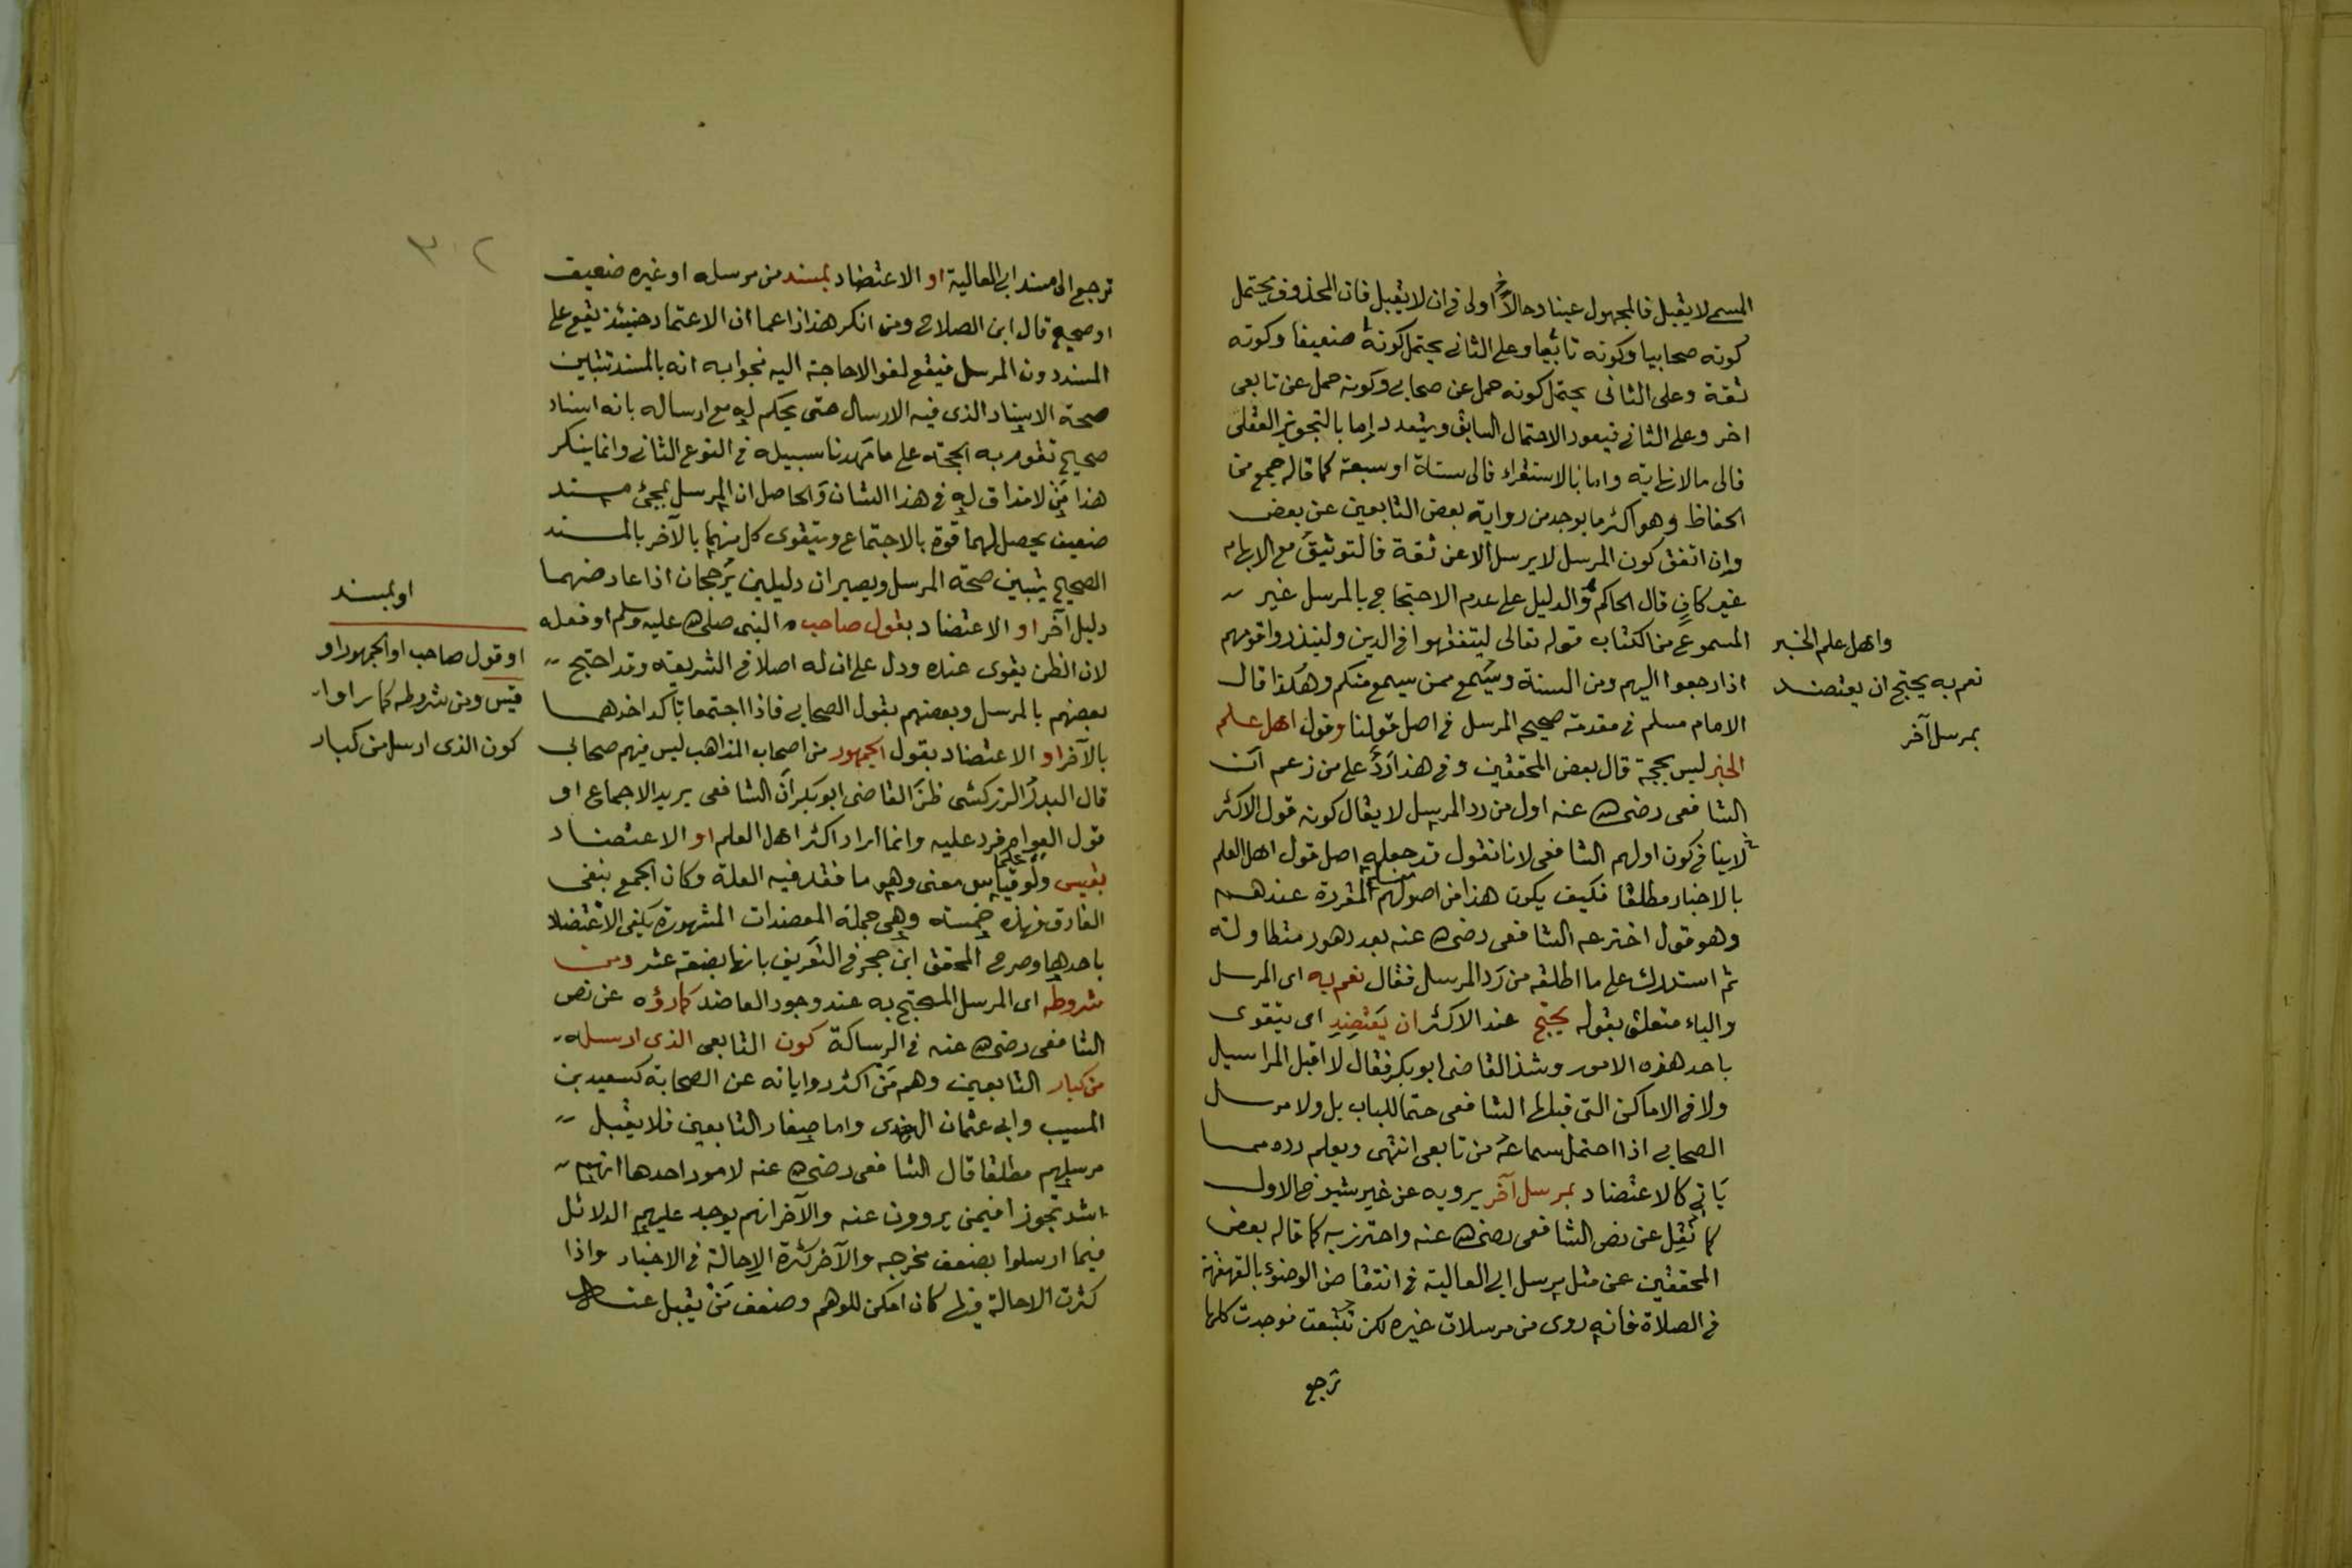 المسمى لا يقبل فالمجهول عينا وحالا اولى فى ان لا يقبل فان المحذوف يحتمل
كونه صحابيا وكونه تابعيا وعلى الثانى يحتمل كونه ضعيفا وكونه
ثقة وعلى الثانى يحتمل كونه حمل عن صحابى وكونه حمل عن تابعى
اخر وعلى الثانى فيعود الاحتمال السابق ويتعدد إما بالتجويز العقلى
فالى مالانهاية واما بالاستقراء فالى ستة او سبعة كما قاله جمع من
الحفاظ وهو اكثر ما يوجد من رواية بعض التابعين عن بعض
وان اتفق كون المرسل لا يرسل الا عن ثقة فالتوثيق مع الابهام
غير كافٍ قال الحاكم والدليل على عدم الاحتجاج بالمرسل غير
المسموع من الكتاب قوله تعالى ليتفقهوا فى الدين ولينذروا قومهم
اذا رجعوا اليهم ومن السنة ويُسمع ممن سيمع منكم وهكذا قال
الامام مسلم فى مقدمة صحيحه المرسل فى اصل قولنا وقول اهل علم
الخبر ليس بحجة قال بعض المحققين وفى هذا رَدٌّ على من زعم ان
الشافعى رضى الله عنه اول من رد المرسل لا يقال كونه قول الاكثر
لاينافى كون اولهم الشافعى لانا نقول قد جعله اصل قول اهل العلم
بالاخبار مطلقا فكيف يكون هذا من اصولهم المقررة عندهم
وهو قول اخترعه الشافعى رضى الله عنه بعد دهور متطاولة
ثم استدرك على ما اطلقه من رَد المرسل فقال نعم به اى المرسل
والباء متعلق بقوله يحتج عند الاكثر ان يَعتضِد اى يتقوى
باحد هذه الامور وشذ القاضى ابوبكر فقال لا اقبل المراسيل
ولا فى الاماكن التى قبلها الشافعى حتما للباب بل ولا مرسل
الصحابى اذا احتمل سماعه من تابعى انتهى ويعلم رده مما
يَاتى كالاعتضاد بمرسل آخر يرويه عن غير شيوخ الاول
كما نُقِل عن نص الشافعى رضى الله عنه واحترز به كما قاله بعض
المحققين عن مثل مرسل ابى العالية فى انتقاض الوضوء بالقهقهة
فى الصلاة فانه روى من مرسلات غيره لكن تتبعت فوجدت كلها
ترجع
واهل علم الخبر
نعم به يحتج ان يعتضد
بمرسل آخر
٣٠٢
ترجع الى مسند ابى العالية او الاعتضاد بمسند من مرسله او غيره ضعيف
او صحيح قال ابن الصلاح ومن انكر هذا زاعما ان الاعتماد حينئذ يقع على
المسند دون المرسل فيقع لغوا لاحاجة اليه فجوابه انه بالمسند تتبين
صحة الاسناد الذى فيه الارسال حتى يحكم له مع ارساله بانه اسناد
صحيح تقوم به الحجة على ما مَهدنا سبيله فى النوع الثانى وانما ينكر
هذا مَن لا مذاق له فى هذا الشان وَالحاصل ان المرسل بمجئ مسند
ضعيف يحصل لهما قوة بالاجتماع ويتقوى كل منهما بالآخر بالمسند
الصحيح يتبين صحة المرسل ويصيران دليلين يُرجحان اذا عارضهما
دليل آخر او الاعتضاد بقول صاحب النبى صلى الله عليه وسلم او فعله
لان الظن يقوى عنده ودل على ان له اصلا فى الشريعة وقد احتج
بعضهم بالمرسل وبعضهم بقول الصحابى فاذا اجتمعا تأكد احدهما
بالآخر او الاعتضاد بقول الجمهور من اصحاب المذاهب ليس فيهم صحابى
قال البدرُ الزركشى ظَنَّ القاضى ابوبكر انَّ الشافعى يريد الاجماع او
قول العوام فرد عليه وانما اراد اكثر اهل العلم او الاعتضاد
بقيس ولو قياس معنى وهو ما فقد فيه العلة وكان الجمع بنفى
الفارق فهذه خمسة وهى جملة المعضدات المشهورة يكفى الاعتضاد
باحدها وصرح المحقق ابن حجر فى التعريف بانها بضعة عشر ومن
شروطه اى المرسل المحتج به عند وجود العاضد كما رَوَوْه عن نص
الشافعى رضى الله عنه فى الرسالة كون التابعى الذى ارسله
من كبار التابعين وهم مَن اكثر رواياته عن الصحابة كسعيد بن
المسيب وابى عثمان النهدى واما صغار التابعين فلا يقبل
مرسلهم مطلقا قال الشافعى رضى الله عنه لامور احدها انهم
اشد تجوزا فيمن يروون عنه والآخر انهم يوجد عليهم الدلائل
فيما ارسلوا بضعف مخرجه والآخر كثرة الاحالة فى الاخبار واذا
كثرت الاحالة فيها كان امكن للوهم وضعف مَنْ يقبل عنه
او بمسند
او قول صاحب او الجمهور او
قيس ومن شروطه كما راوا
كون الذى ارسل من كبار